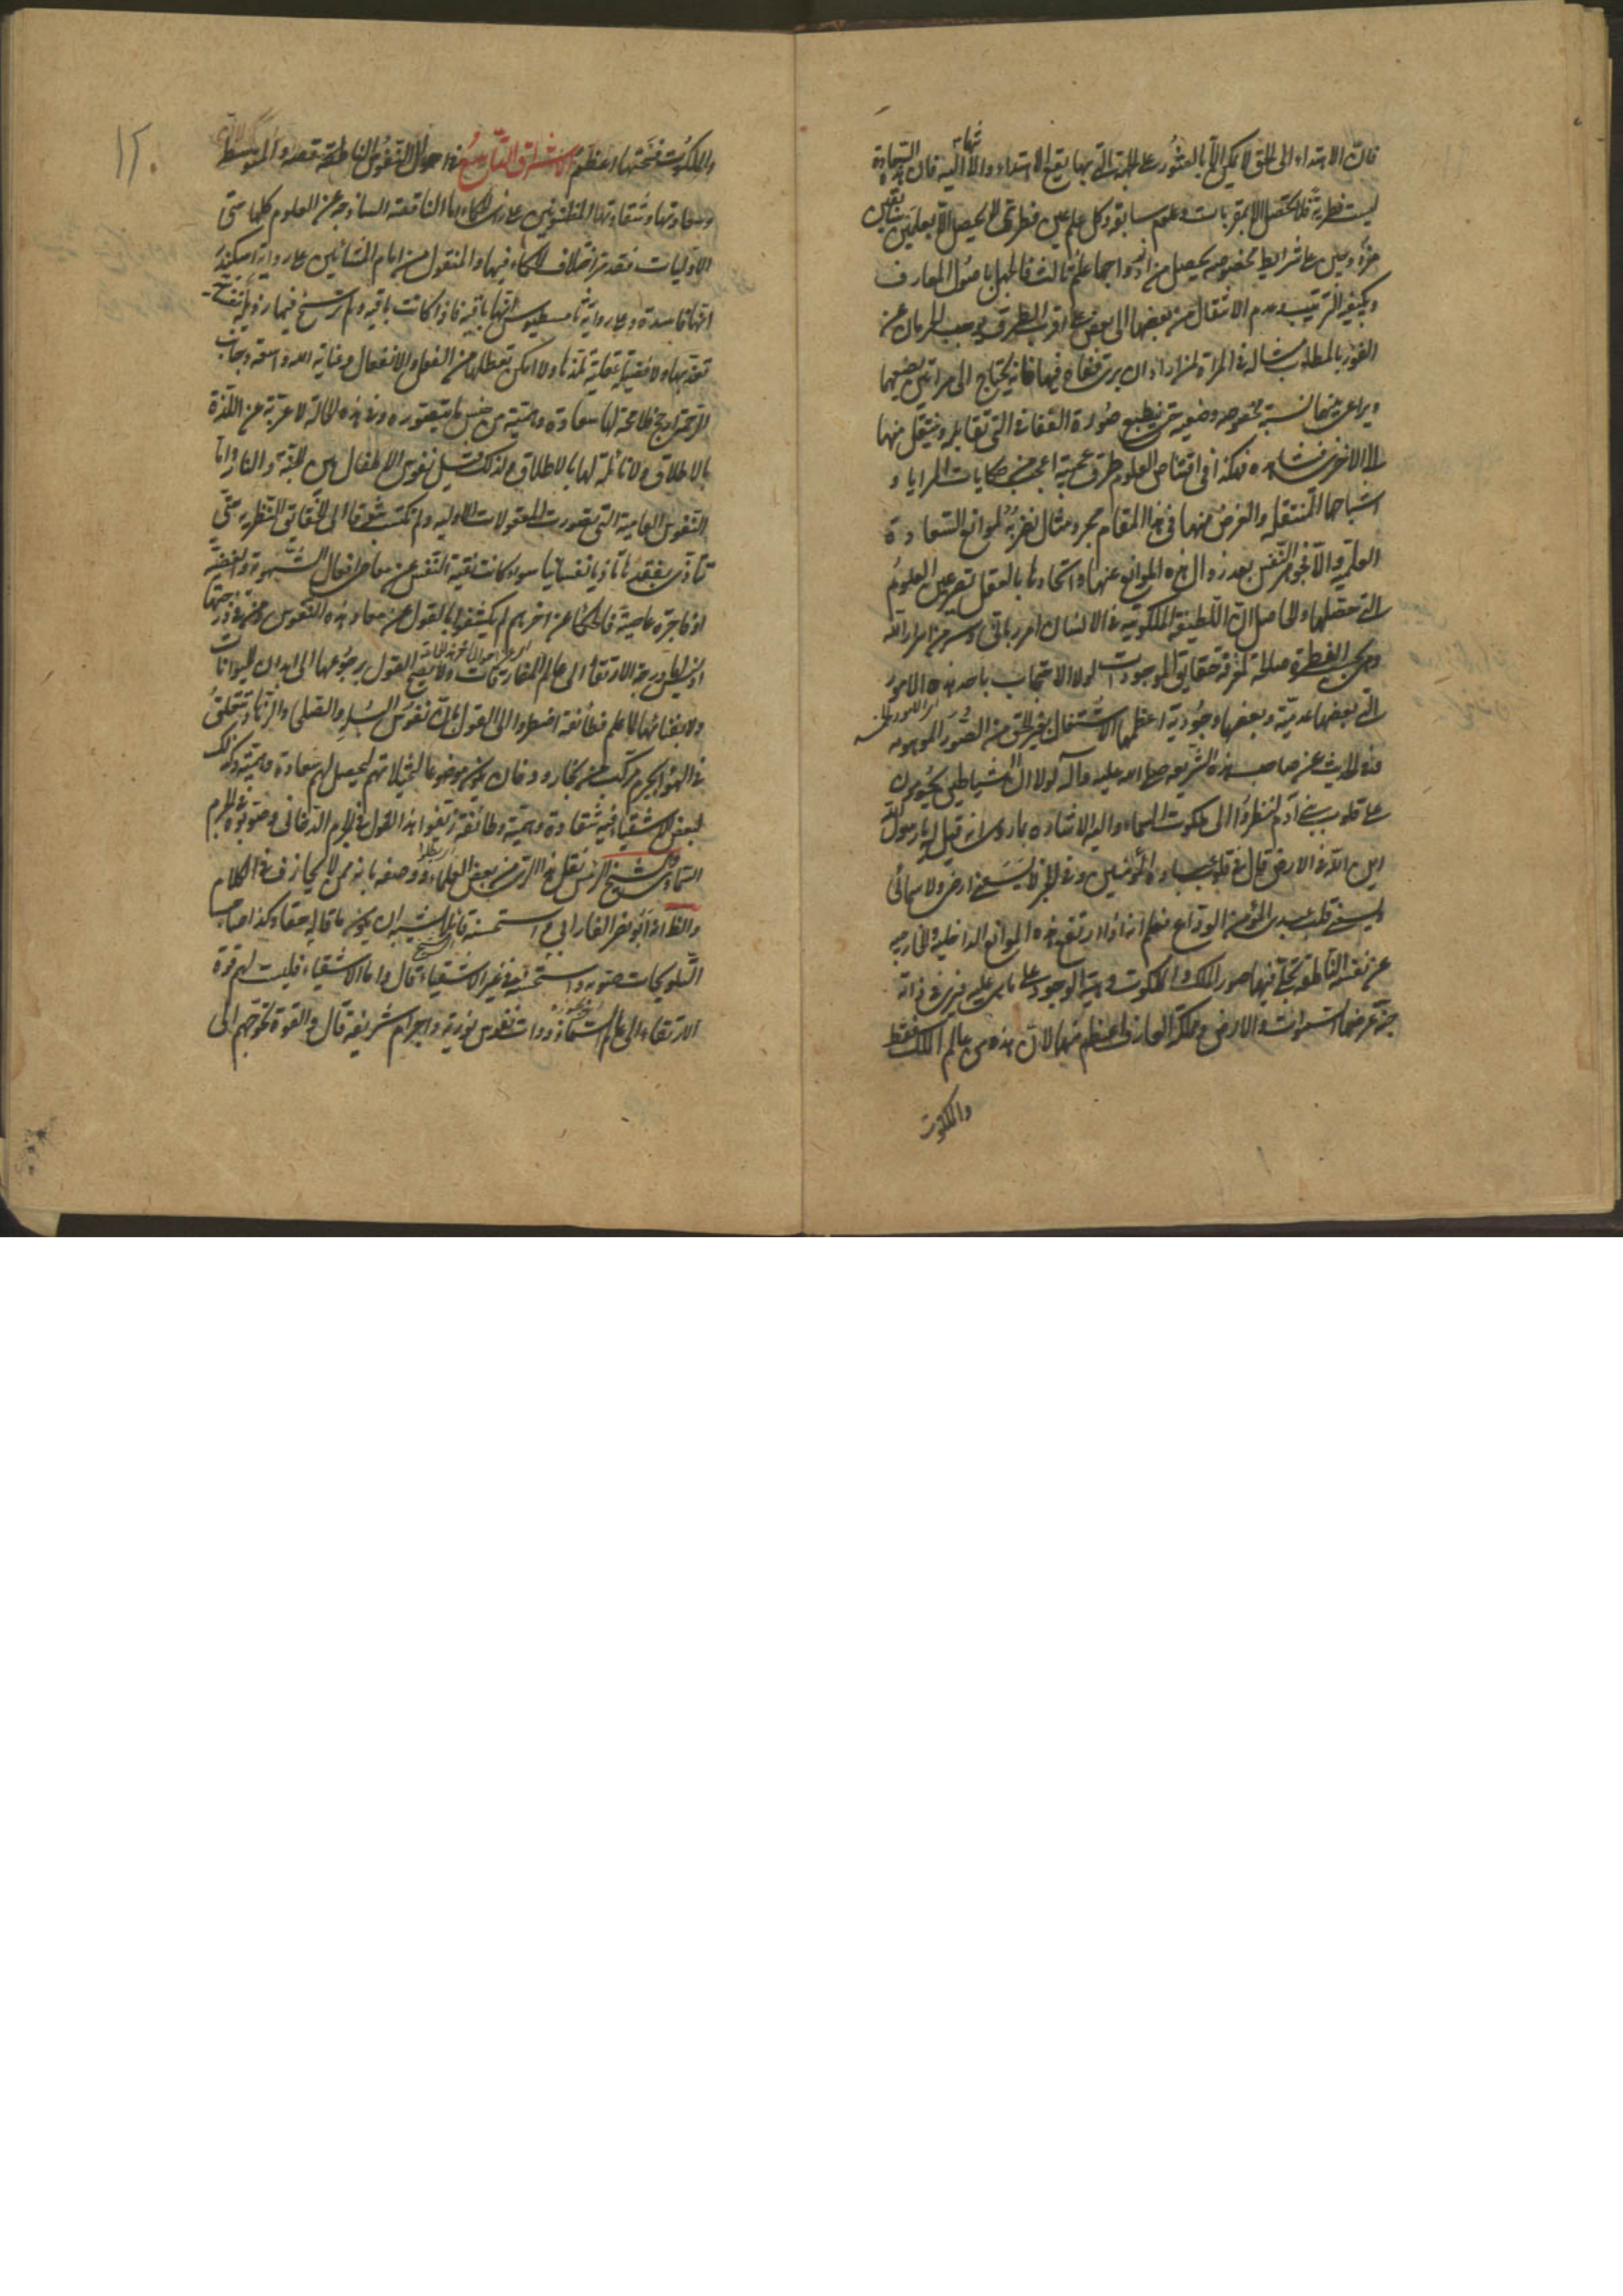 فان الاهتداء الى الحق لا يمكن الا بالعثور على الجهة التي بها يقع الاهتداء والا اليه فان السعادة
ليست فطرية فلا تحصل الا بمقدمات وعلوم سابقة وكل علم غير فطري لا يحصل الا بعلمين سابقين
على شرايط مخصوصة يحصل من ازدواجهما علم ثالث فالجهل باصول المعارف
وبكيفية الترتيب وعدم الانتقال من بعضها الى بعض على اقرب الطرق يوجب الحرمان عن
الفوز بالمطلوب مثاله في المرآة لمن اراد ان يرى قفاه فيها فانه يحتاج الى مراتين يضعهما
ويراعي بينهما نسبة مخصوصة وضعية حتى ينطبع صورة القفا في التي تقابله وينتقل منها
الى الاخرى فيشاهده فهكذا في اقتناص العلوم طرق عجيبة اعجب من حكايات المرايا و
اشباحها المنتقلة والغرض منها في هذا المقام مجرد مثال نضربه لموانع السعادة
العلمية والا فجوهر النفس بعد زوال هذه الموانع عنها واتحادها بالعقل تصير عين العلوم
التي حصلتها والحاصل ان اللطيفة الملكوتية في الانسان امر رباني وسر من اسرار الله
وهي بحسب الفطرة صالحة لمعرفة حقايق الموجودات لولا الاحتجاب باحد هذه الامور
التي بعضها عدمية وبعضها وجودية اعظمها الاشتغال بغير الحق من الصور الموهومة
ففي الحديث عن صاحب هذه الشريعة صلى الله عليه وآله لولا ان الشياطين يحومون
على قلوب بني آدم لنظروا الى ملكوت السماء واليه الاشارة بما روى انه قيل له يا رسول الله
اين الله في الارض قال في قلوب عباده المؤمنين وفي الخبر لا يسعني ارضي ولا سمائي
ويسعني قلب عبدي المؤمن الوداع فعلم انه اذا ارتفع هذه الموانع الداخلية والخارجية
عن نفسه الناطقة تجلى فيها صور الملك والملكوت وهيئة الوجود على ما هي عليه فيرى في ذاته
جنة عرضها السموات والارض ومملكة العارف اعظم منها لان هذه من عالم الملك فقط
والملكوت
١٢٠
والملكوت فجنتها اعظم الاشراق التاسع في احوال النفوس الناطقة الناقصة والمتوسطة
وسعادتها وشقاوتها المظنونتين على رأي الحكماء اما الناقصة الساذجة عن العلوم كلها حتى
الاوليات فقد مر اختلاف الحكماء فيها والمنقول من امام المشائين على رواية اسكندر
انها فاسدة وعلى رواية ثامسطيوس انها باقية فاذا كانت باقية ولم يترسخ فيها رذيلة نفسانية
تعذبها ولا فضيلة عقلية تلذها ولا امكن تعطلها عن الفعل والانفعال وعناية الله واسعة وجانب
الرحمة ارجح فلا محالة لها سعادة وهمية من جنس ما تتصوره وفي هذه الحالة لا عرية عن اللذة
بالاطلاق ولا نائلة لها بالاطلاق ولذلك قيل نفوس الاطفال بين الجنة والنار واما
النفوس العامية التي تصورت المعقولات الاولية ولم تكتسب شوقا الى الحقايق النظرية حتى
تتأذى بفقدها تأذيا نفسانيا سواء كانت نقية النفس عن معاصى افعال الشهوة والغضب
او فاجرة عاصية فالحكماء عن آخرهم لم يكشفوا بالقول عن معاد هذه النفوس ومن في درجتها
اذ ليس لها درجة الارتقاء الى عالم المفارقات ولا يصح القول برجوعها الى ابدان الحيوانات
ولا بفنائها لما علم فطائفة اضطروا الى القول بان نفوس البله والصلحاء والزهاد تتعلق
في الهواء بجرم مركب من بخار ودخان يكون موضوعا لتخيلاتهم ليحصل لهم سعادة وهمية وكذلك
لبعض الاشقياء فيه شقاوة وهمية وطائفة زيفوا هذا القول في الجرم الدخاني وصوبوه في الجرم
السماوي والشيخ الرئيس نقل هذا الرأي من بعض العلماء ووصفه بانه ممن لا يجازف في الكلام
والظاهر انه ابو نصر الفارابي واستحسنه قائلا يشبه ان يكون ما قاله حقا وكذا صاحب
التلويحات صوبه واستحسنه في غير الاشقياء قال واما الاشقياء فليست لهم قوة
الارتقاء الى عالم السماء ذوات نفوس نورية واجرام شريفة قال والقوة تحوجهم الى